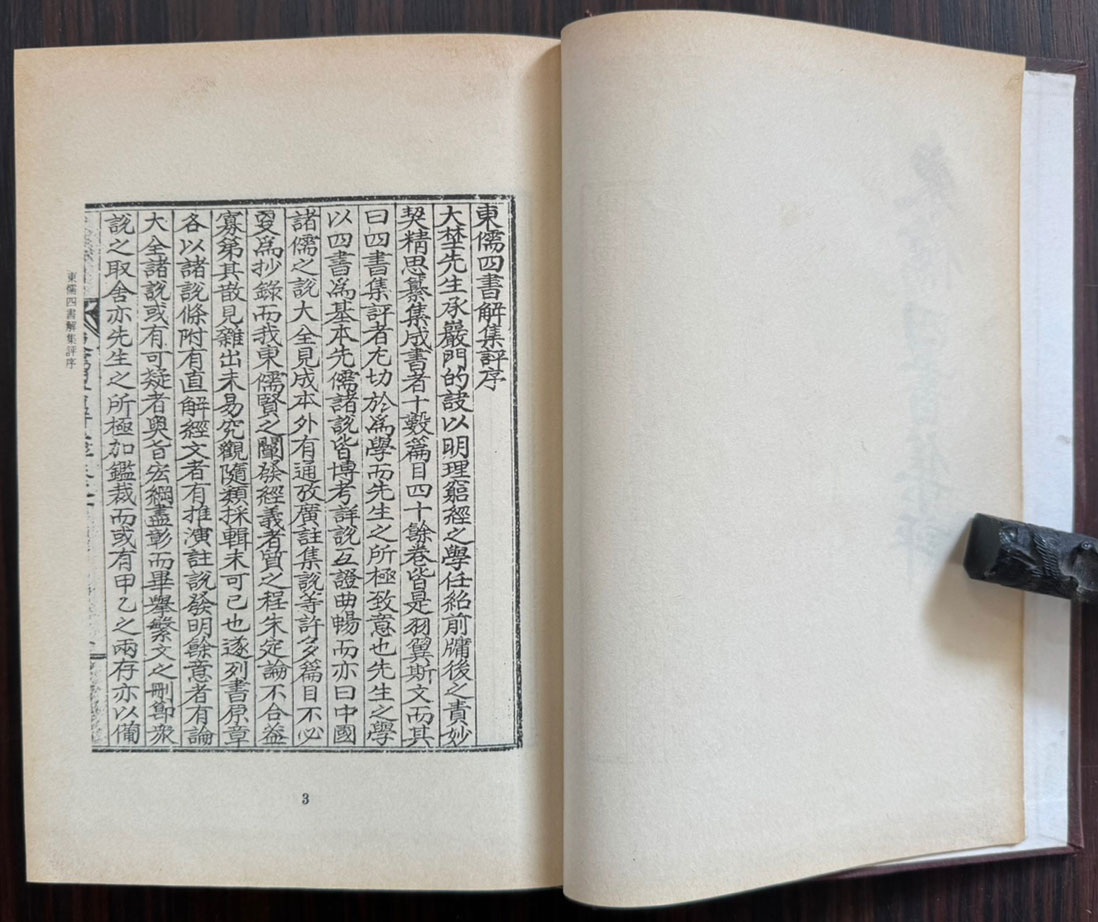 東儒四書解集評序
大埜先生承嚴門的訣以明理窮經之學任紹前牖後之責妙
契精思纂集成書者十數篇目四十餘卷皆是羽翼斯文而其
曰四書集評者尤切於爲學而先生之所極致意也先生之學
以四書爲基本先儒諸說皆博考詳說互證曲暢而亦曰中國
諸儒之說大全見成本外有通攷廣註集說等許多篇目不必
更爲抄錄而我東儒賢之闡發經義者質之程朱定論不合益
寡第其散見雜出未易究觀隨類採輯末可已也逐列書原章
各以諸說條附有直解經文者有推演註說發明餘意者有論
大全諸說或有可疑者奧旨宏綱盡彰而畢擧繁文之刪節衆
說之取舍亦先生之所極加鑑裁而或有甲乙之兩存亦以備
東儒四書解集評序
3